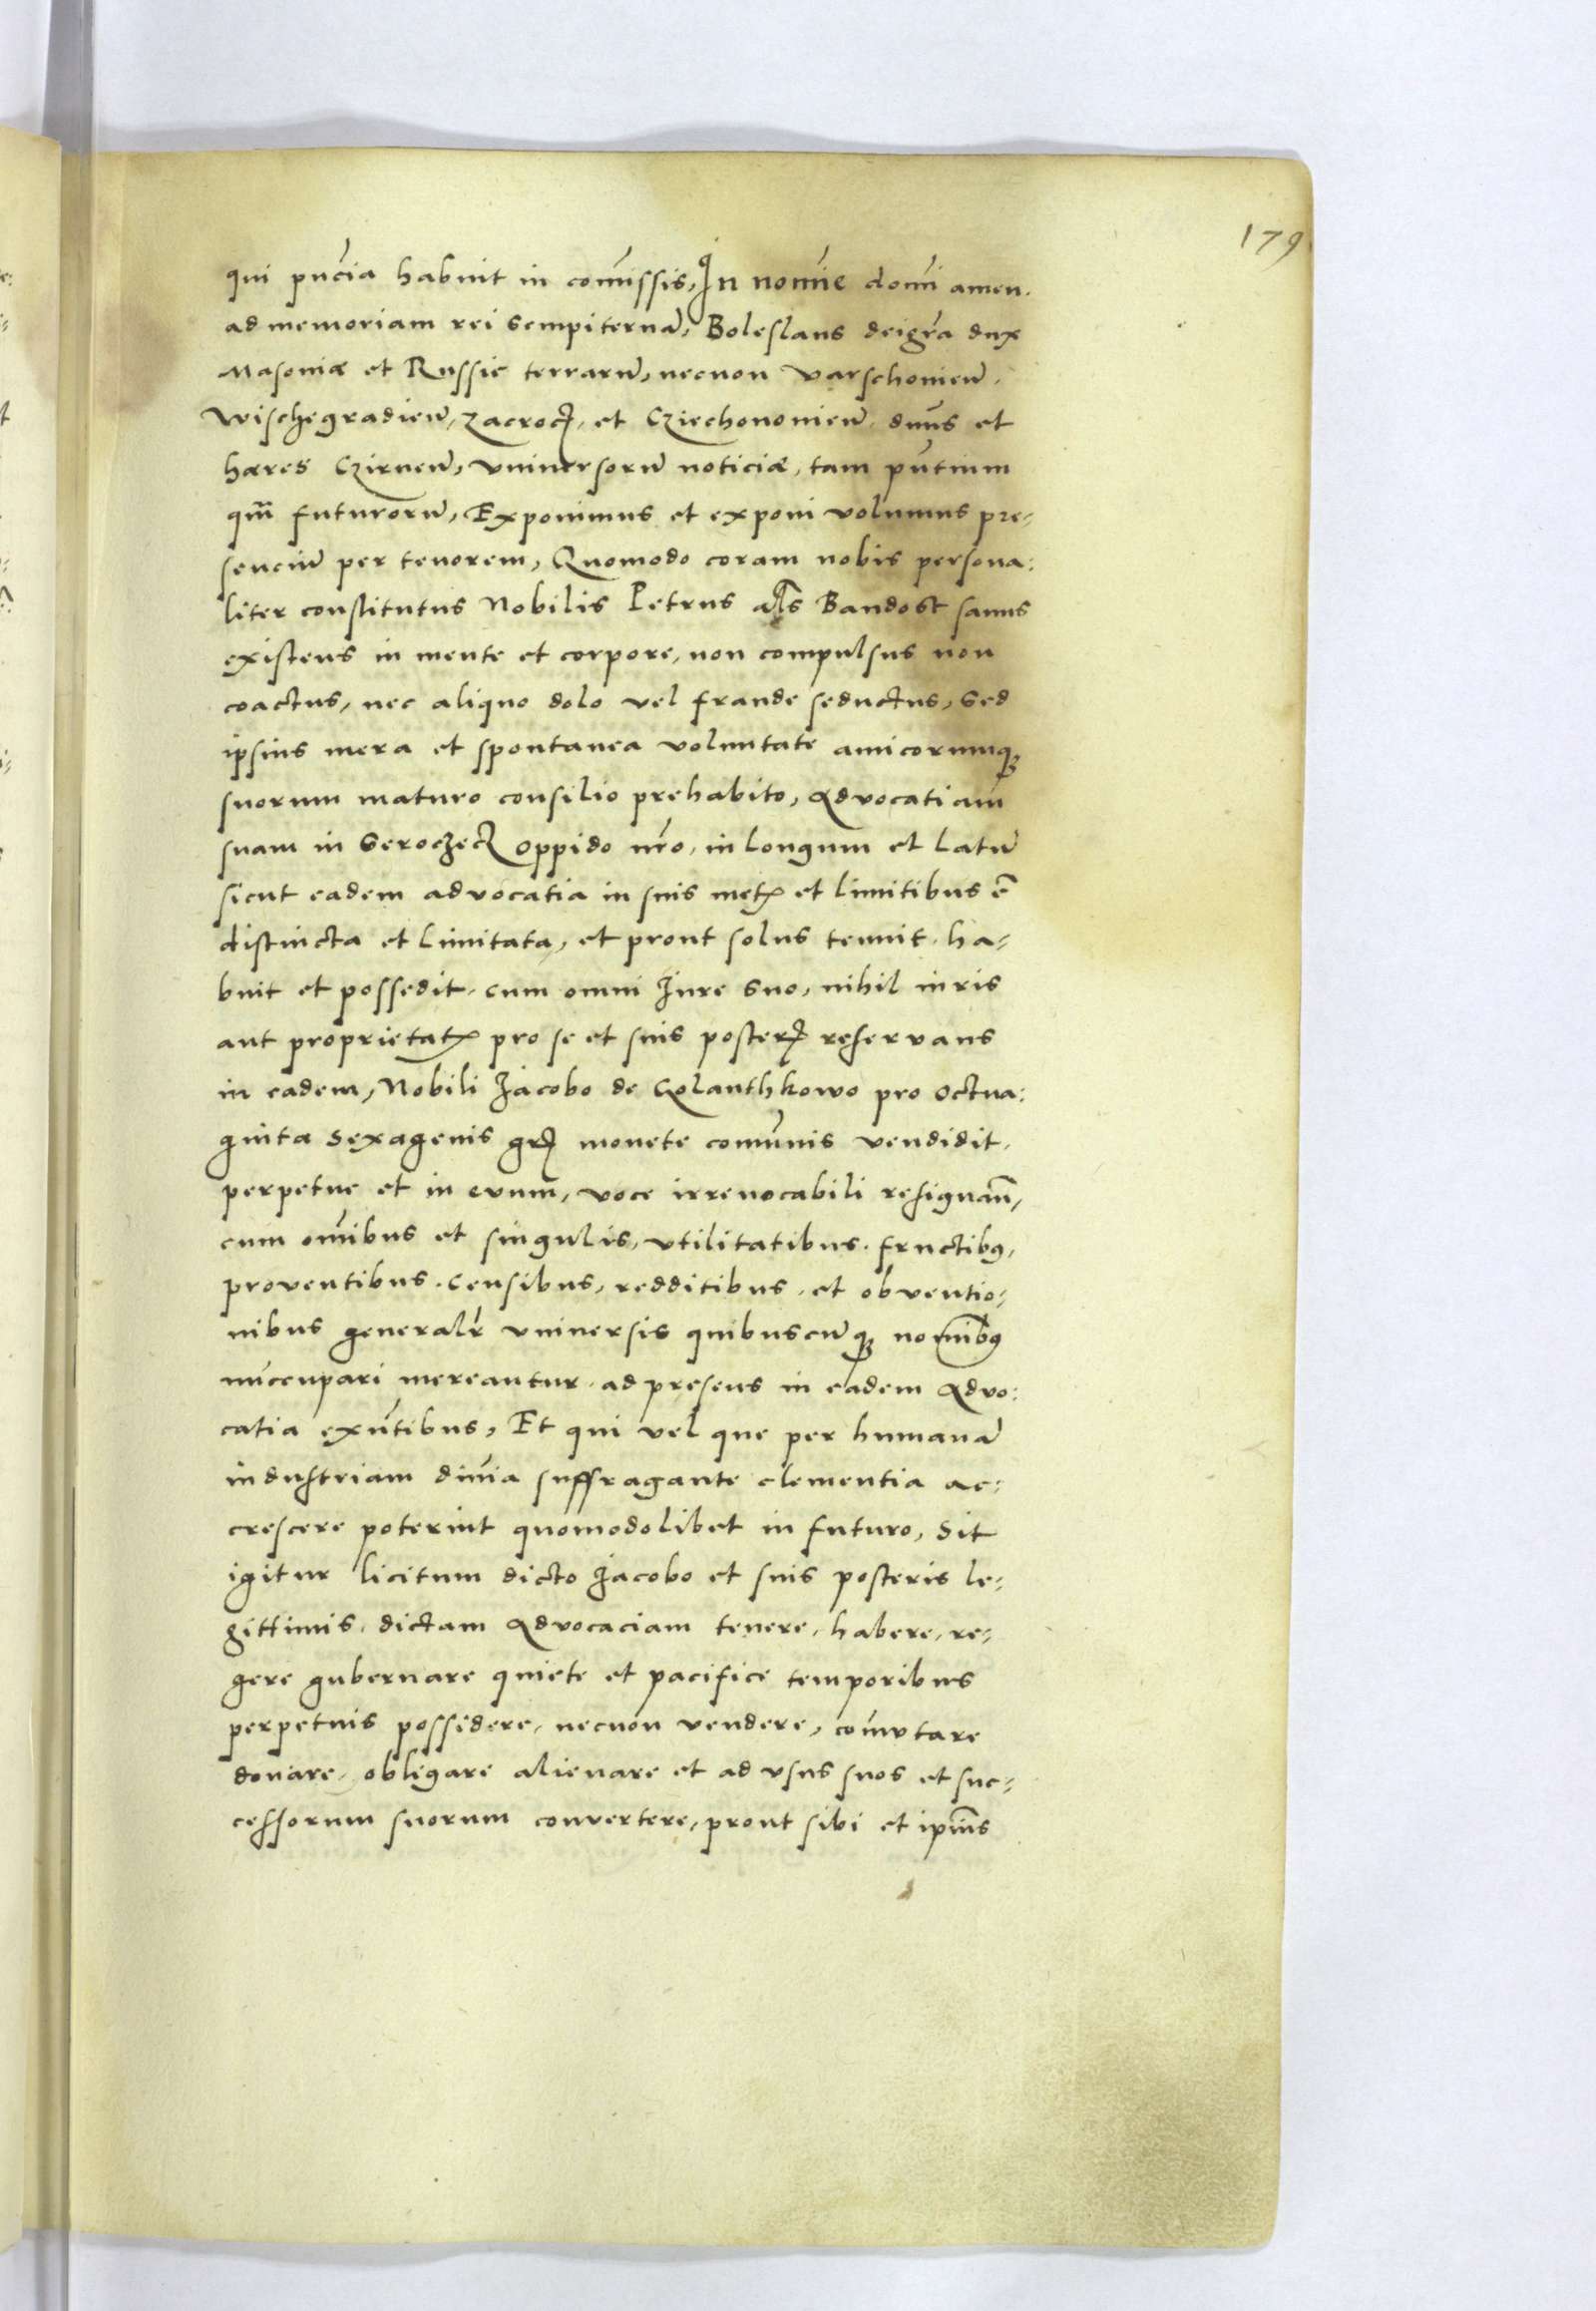 179
qui pñcia habuit in com̃issis, In nomĩe domĩ amen.
ad memoriam rei sempiternã, Boleslaus dei gr̃a dux
Masoniæ et Russie terrarũ, necnon varschonieñ.
Wischegradieñ, zacrocz, et Cziechonomieñ, dñus et
hæres Czirneñ, vniuersorũ noticiæ, tam pñtium
qm̃ futurorũ, Exponimus et exponi volumus pre-
senciũ per tenorem, Quomodo coram nobis persona:
liter constitutus Nobilis Petrus als Bandost sanus
existens in mente et corpore, non compulsus non
coactus, nec aliquo dolo vel fraude seductus, sed
ipsius mera et spontanea voluntate amicorumqꝫ
suorum maturo consilio prehabito, Advocatiam
suam in Seroczecz oppido nr̃o, in longum et latũ
sicut eadem advocatia in suis metꝭ et limitibus ẽ
distincta et limitata, et prout solus tenuit. ha-
buit et possedit. cum omni Jure suo, nihil iuris
aut proprietatꝭ pro se et suis posterꝭ reservans
in eadem, Nobili Jacobo de Golanthkowo pro octua:
ginta sexagenis grꝭ monete com̃unis vendidit.
perpetue et in evum, voce irrevocabili resignaũ,
cum om̃ibus et singulis, vtilitatibus. fructibꝯ,
proventibus. censibus, redditibus. et obventio-
nibus generalr̃ vniuersis quibuscũqꝫ nomĩbꝯ
nũcupari mereantur. ad presens in eadem Advo:
catia exñtibus, Et qui vel que per humanã
industriam diuĩa suffragante clementia ac-
crescere poterint quomodolibet in futuro, Sit
igitur licitum dicto Jacobo et suis posteris le-
gittimis. dictam Advocaciam tenere, habere, re-
gere gubernare quiete et pacifice temporibus
perpetuis possidere, necnon vendere, com̃utare
donare, obligare alienare et ad vsus suos et suc-
cessorum suorum convertere, prout sibi et ipĩus